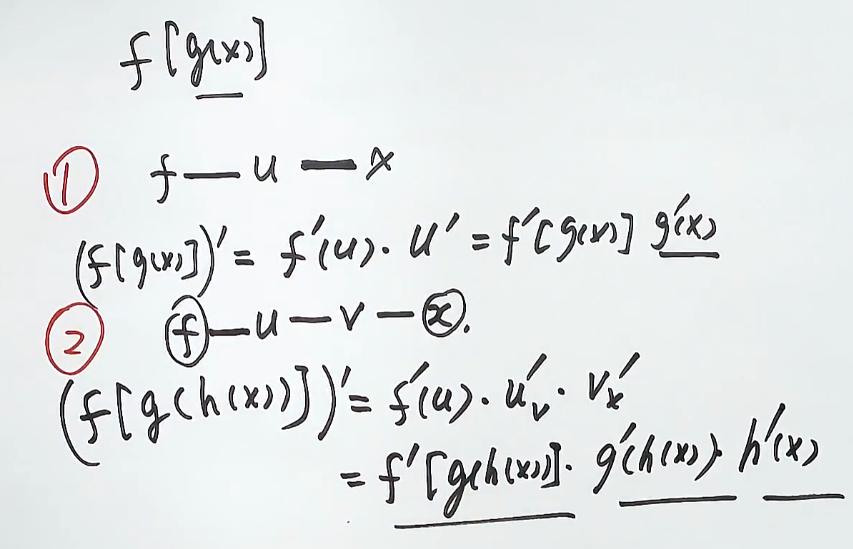 f[g(x)]
① f — u — x
(f[g(x)])' = f'(u)· u' = f'[g(x)] g'(x)
② f — u — v — x.
(f[g(h(x))])' = f'(u)· u'ᵥ · v'ₓ
= f'[g(h(x))]· g'(h(x))· h'(x)